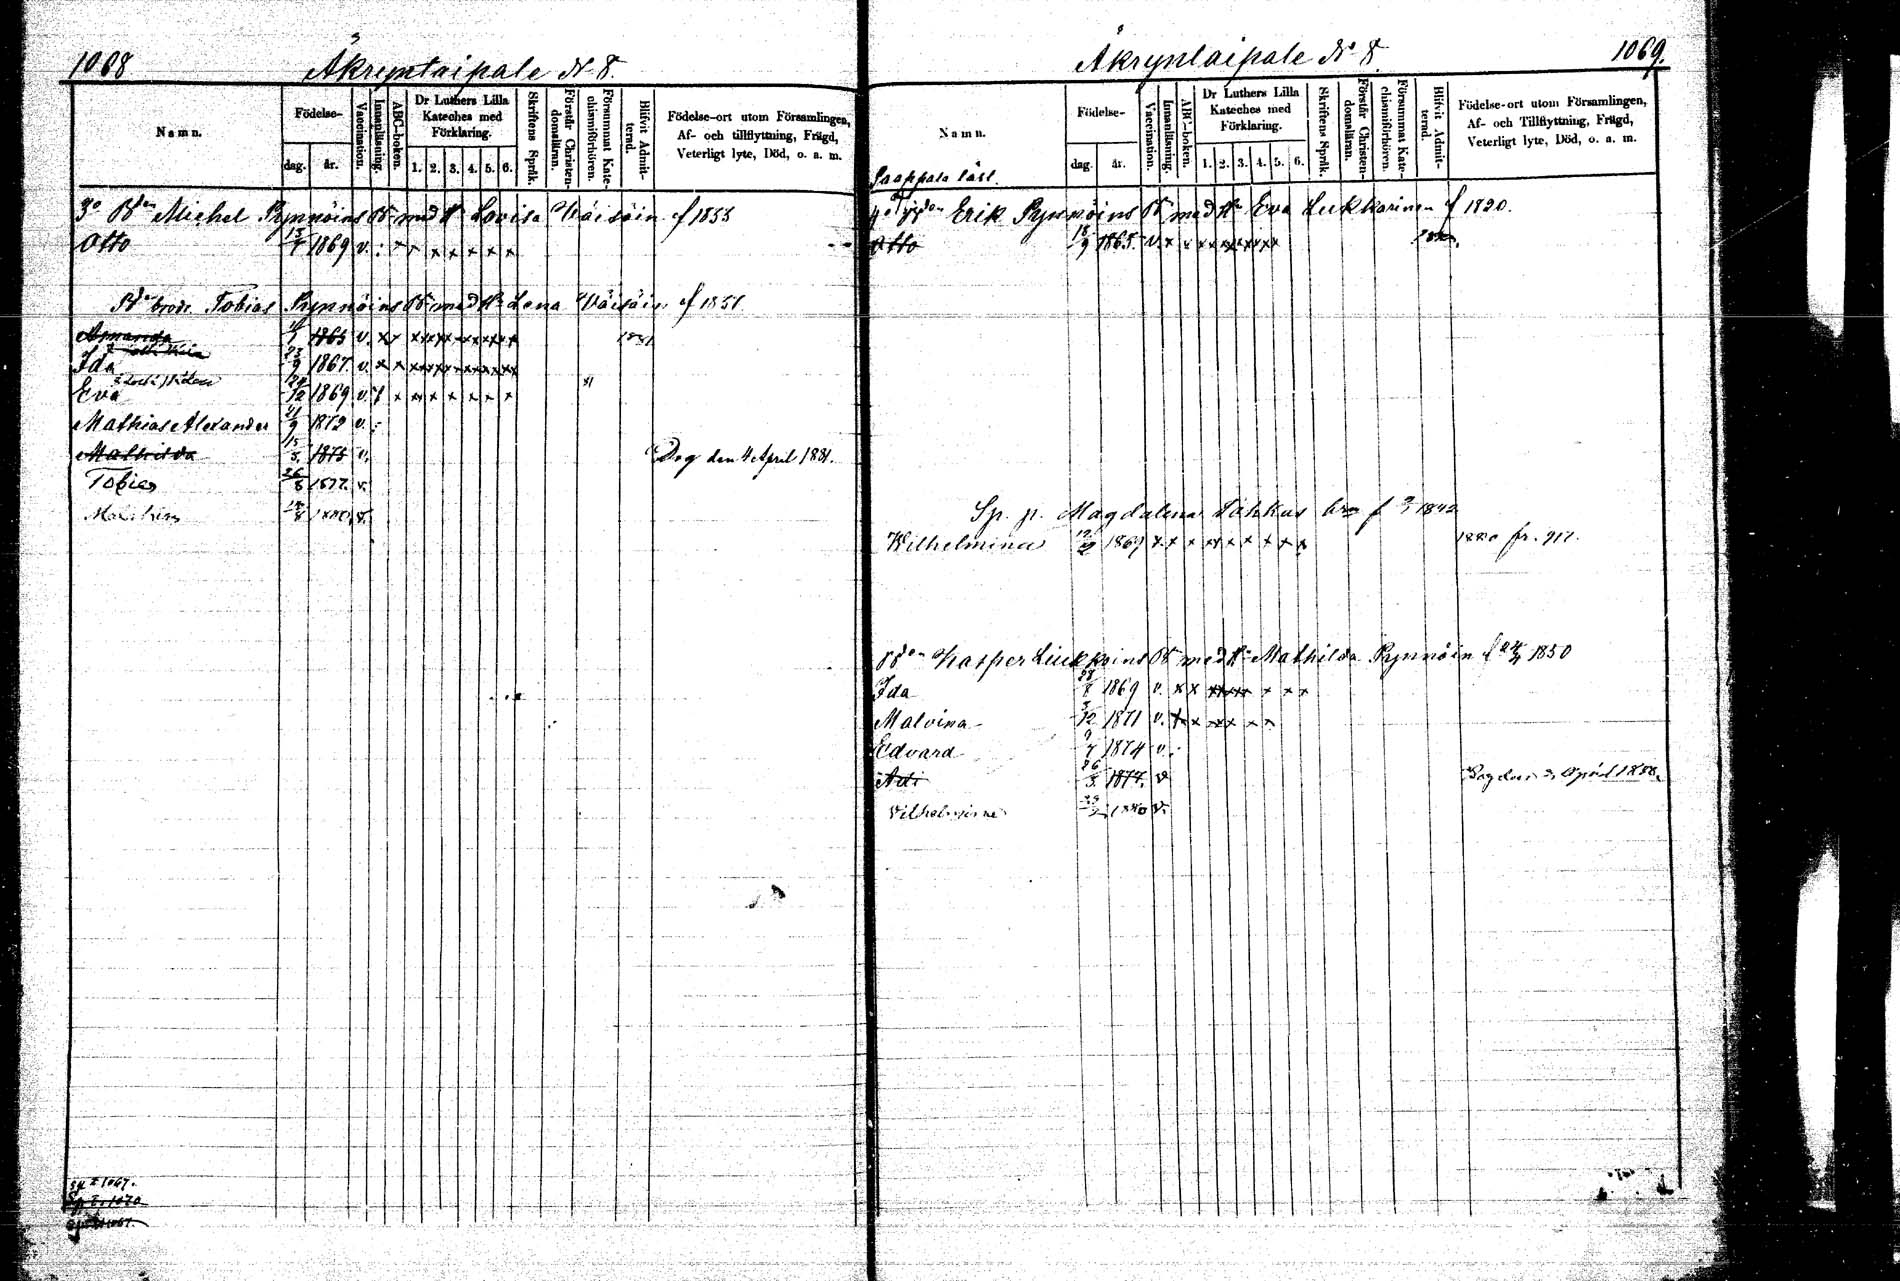 1068
Åkryntaipale N. 8.
Namn.
Födelse-
dag.
år.
Vaccination.
Innanläsning.
ABC-boken.
Dr Luthers Lilla
Kateches med
Förklaring.
1. 2. 3. 4. 5. 6.
Skriftens Språk.
Förstår Christen-
domsläran.
Försummat Kate-
chismiförhören.
Blifvit Admit-
terad.
Födelse-ort utom Församlingen,
Af- och tillflyttning, Frägd,
Veterligt lyte, Död, o. a. m.
3o Bden Michel Pynnöins Br med Hu Lovisa Wäisäin f 1833
Otto 1869 v.
Bdn brode Tobias Pynnöins Br med Hu Lena Wäisäin f 1831
Amanda 1865 v. x x
Ida 23/9 1867. v. x x
Eva 24/12 1869 v.
Mathias Alexander 21/9 1872 v.
Mathilda 15/5 1875 v. Dog den 4 April 1881.
Tobias 26/8 1877. v.
1880. v.
1069.
Åkryntaipale No 8.
Namn.
Födelse-
dag.
år.
Vaccination.
Innanläsning.
ABC-boken.
Dr Luthers Lilla
Kateches med
Förklaring.
1. 2. 3. 4. 5. 6.
Skriftens Språk.
Förstår Christen-
domsläran.
Försummat Kate-
chismiförhören.
Blifvit Admit-
terad.
Födelse-ort utom Församlingen,
Af- och Tillflyttning, Frägd,
Veterligt lyte, Död, o. a. m.
Saappala läsl.
4o Erik Pynnöins Br med Hu Eva Lukkarinen f 1820.
Otto 18/9 1865. v. x x
Sp. p. Magdalena Tahkus f 1842
Wilhelmina 1869 x x x 1880 fr. 917.
Kasper Liukkoins Br med Hu Mathilda Pynnöin f 1850
Ida 28/8 1869 v. x x
Malvina 3/12 1871 v.
Edvard 9/7 1874 v.
Adi 26/5 1877. v April 1888.
Vilhelmine 1880 v.